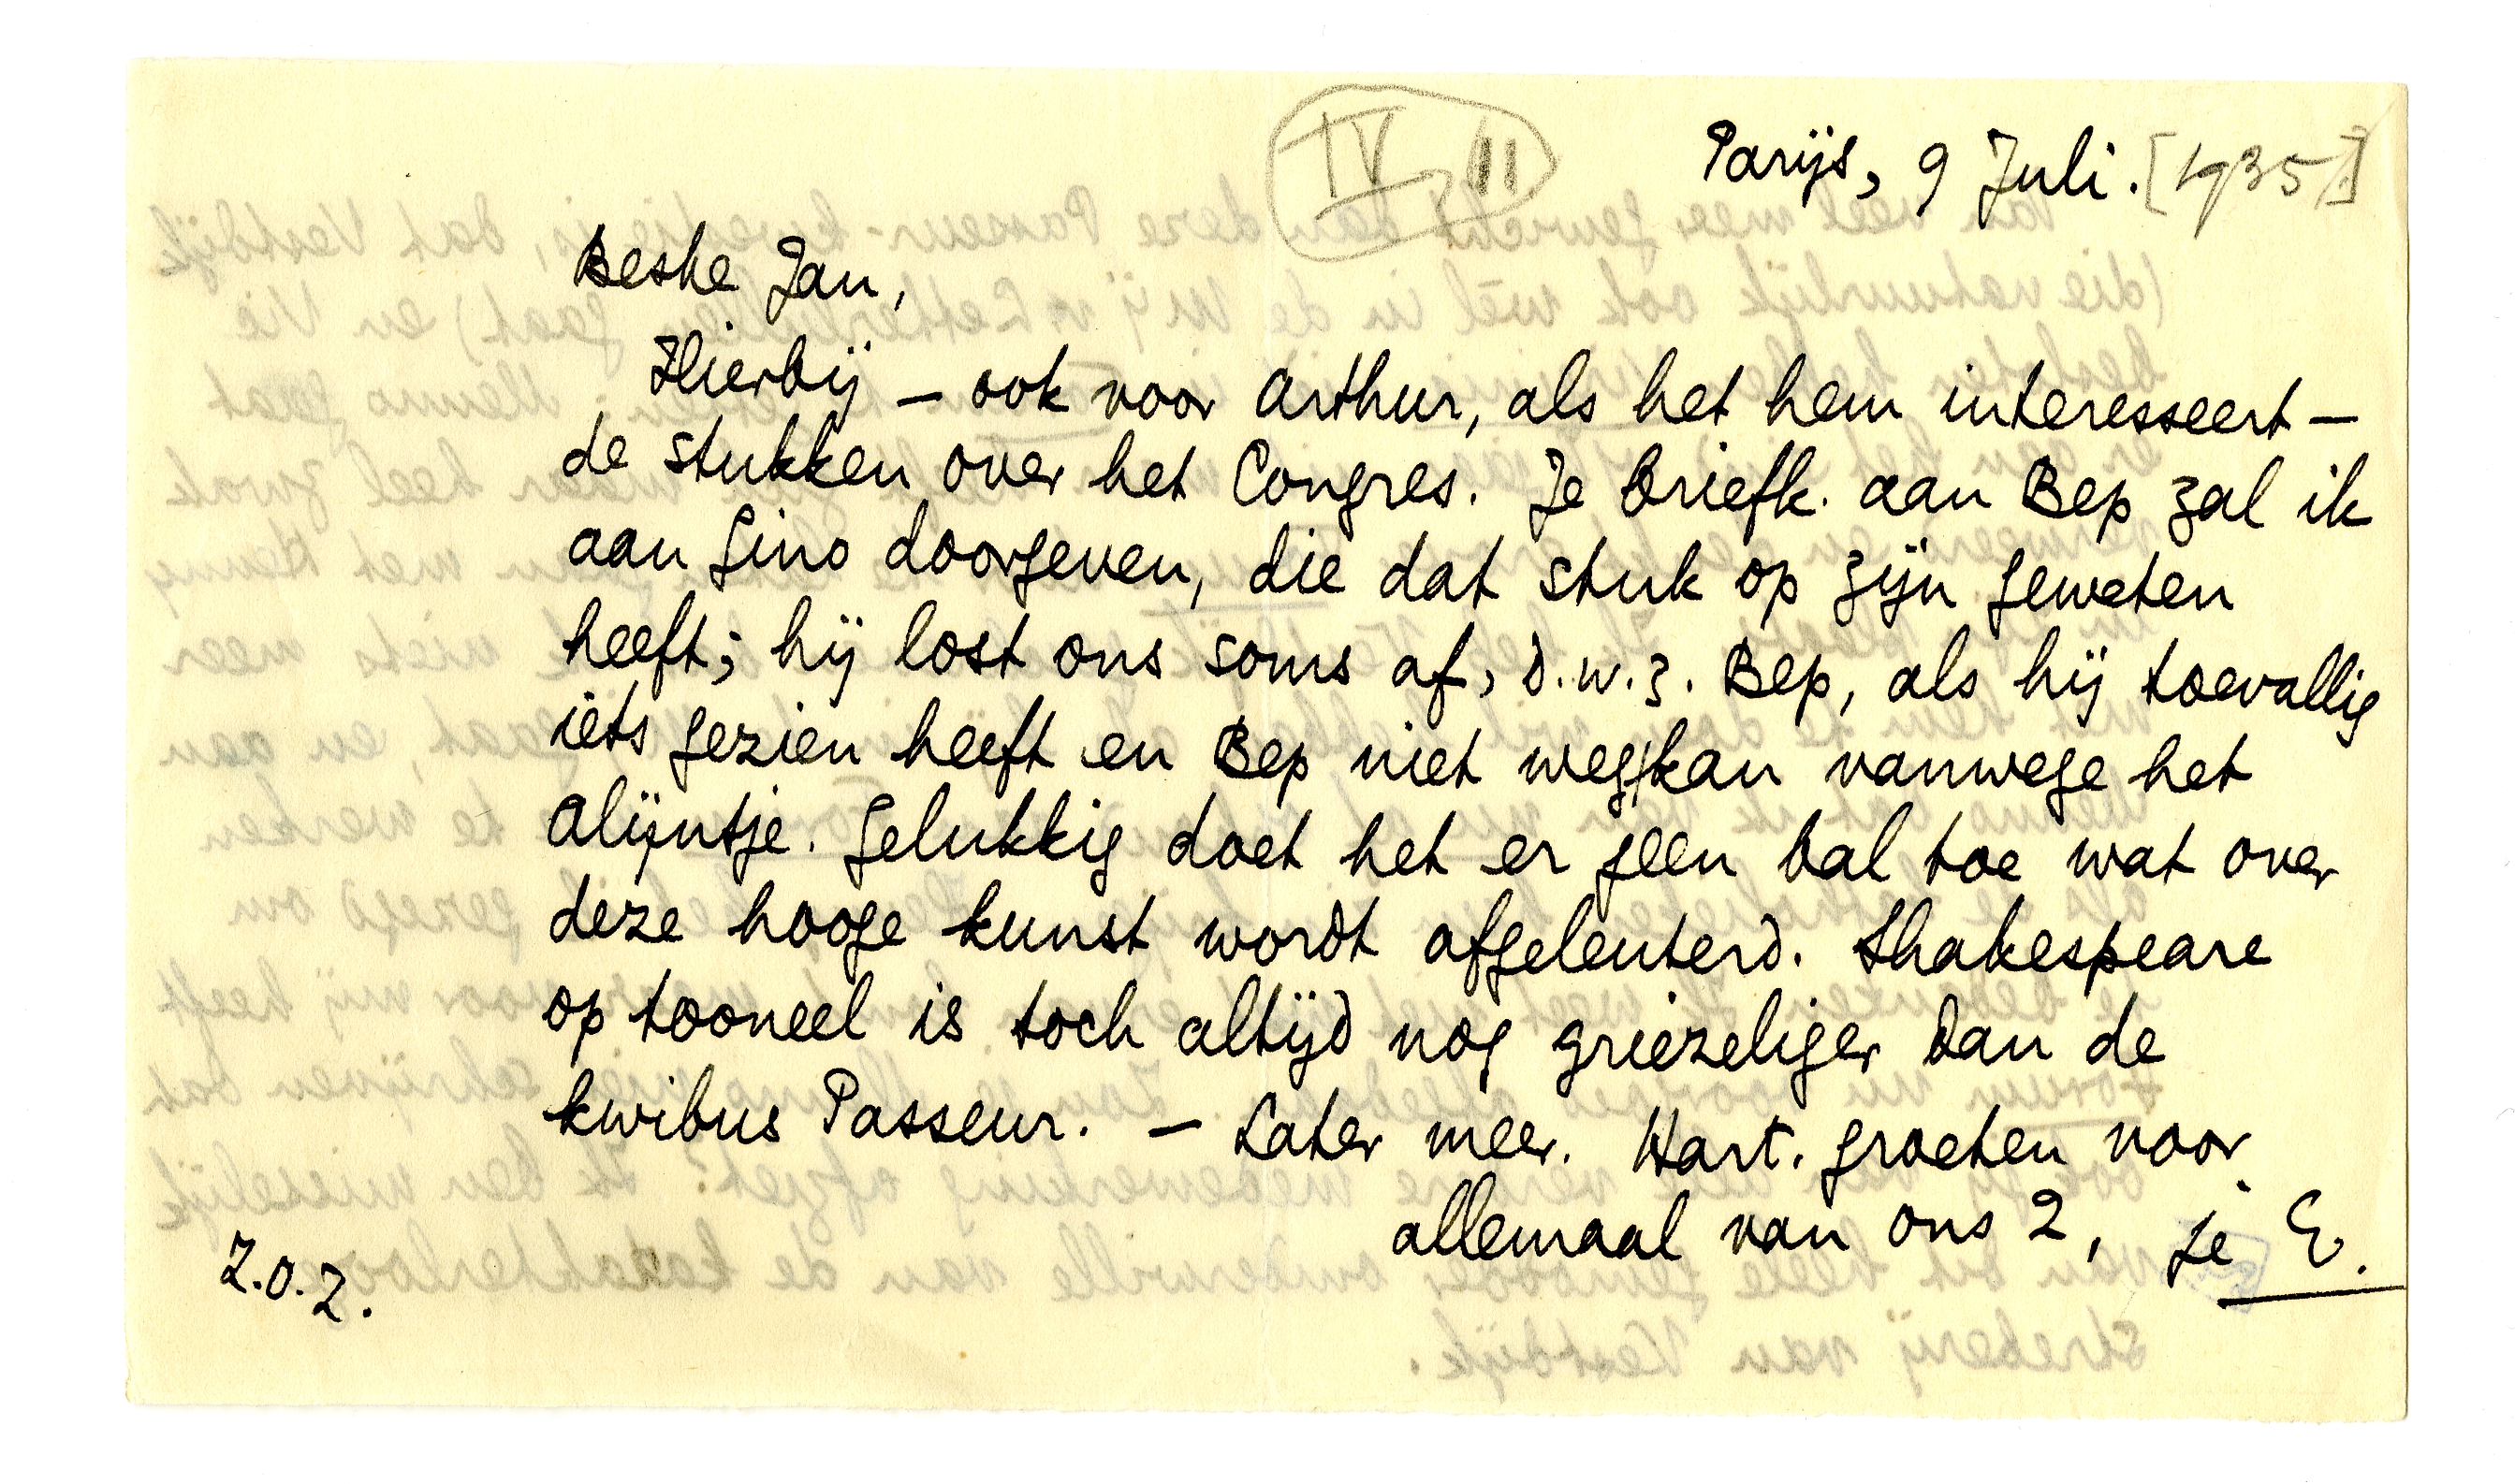 IV, 11
Parijs, 9 Juli. [1935]
Beste Jan,
Hierbij – ook voor Arthur, als het hem interesseert –
de stukken over het Congres. Je briefk. aan Bep zal ik
aan Gino doorgeven, die dat stuk op zijn geweten
heeft; hij lost ons soms af, d.w.z. Bep, als hij toevallig
iets gezien heeft en Bep niet weg/kan vanwege het
Alijntje. Gelukkig doet het er geen bal toe wat over
deze hooge kunst wordt afgeleuterd. Shakespeare
op tooneel is toch altijd nog griezeliger dan de
kwibus Passeur. – Later meer. Hart. groeten voor
allemaal van ons 2, je E.
Z.O.Z.